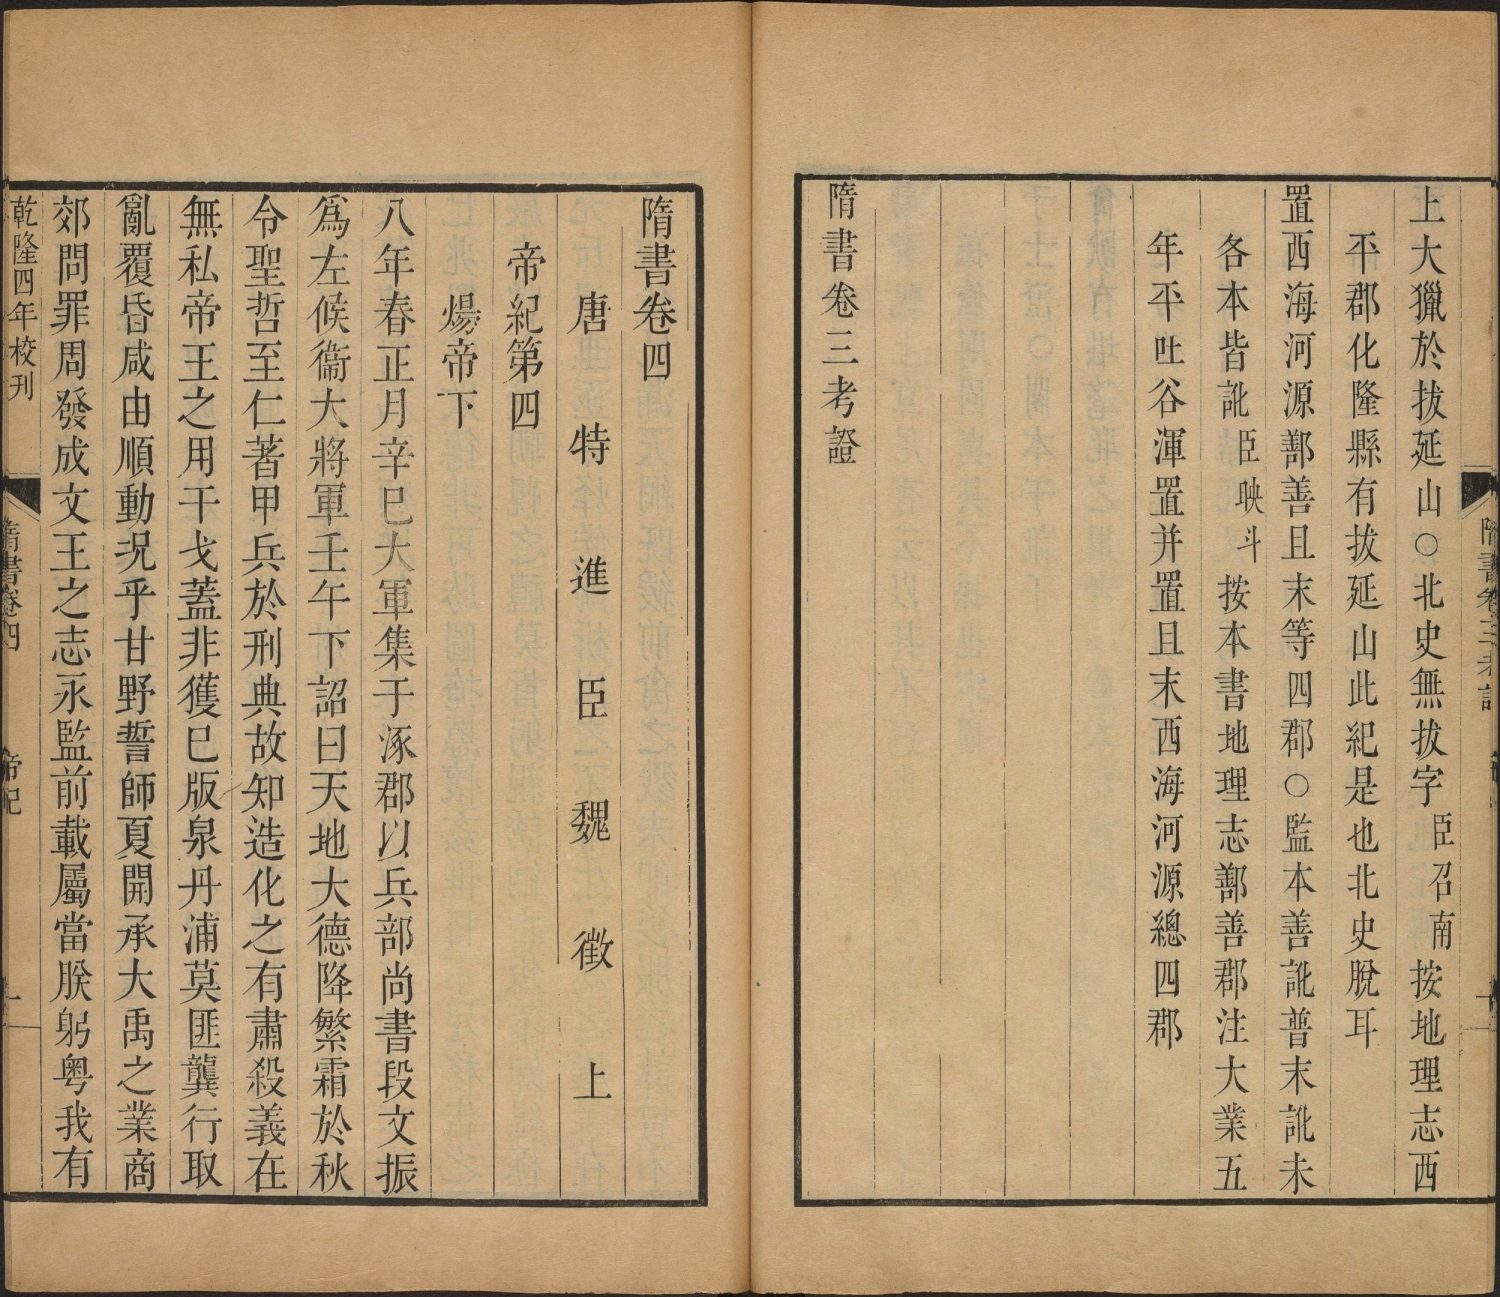 上大獵於拔延山○北史無拔字臣召南按地理志西
平郡化隆縣有拔延山此紀是也北史脫耳
置西海河源鄯善且末等四郡○監本善訛普末訛未
各本皆訛臣映斗按本書地理志鄯善郡注大業五
年平吐谷渾置并置且末西海河源總四郡
隋書卷三考證
隋書卷三考證
隋書卷四
唐特進臣魏徵上
帝紀第四
煬帝下
八年春正月辛巳大軍集于涿郡以兵部尚書段文振
爲左候衞大將軍壬午下詔曰天地大德降繁霜於秋
令聖哲至仁著甲兵於刑典故知造化之有肅殺義在
無私帝王之用干戈蓋非獲已版泉丹浦莫匪龔行取
亂覆昏咸由順動況乎甘野誓師夏開承大禹之業商
郊問罪周發成文王之志永監前載屬當朕躬粵我有
乾隆四年校刊
隋書卷四
帝紀
一